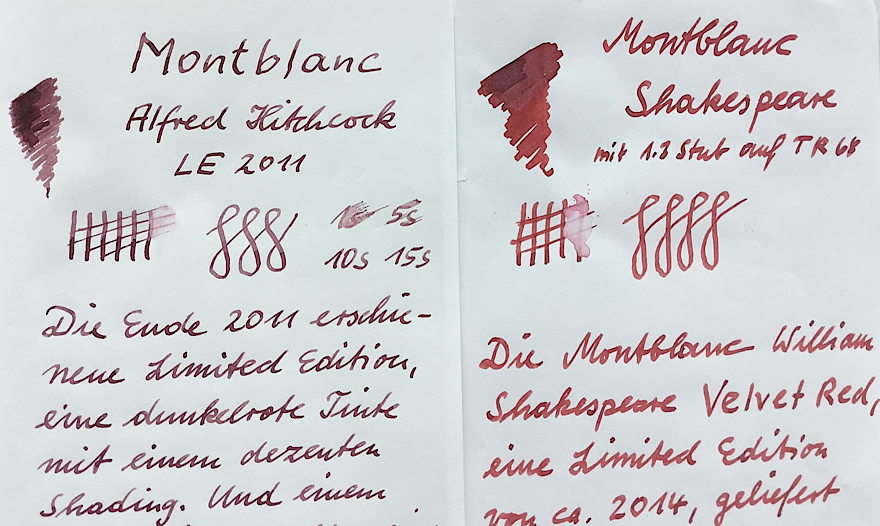 Montblanc
Alfred Hitchcock
LE 2011
1s 5s
10s 15s
Die Ende 2011 erschie-
nene Limited Edition,
eine dunkelrote Tinte
mit einem dezenten
Shading. Und einem
Montblanc
Shakespeare
mit 1.3 Stub auf TR 68
Die Montblanc William
Shakespeare Velvet Red,
eine Limited Edition
von ca. 2014, geliefert